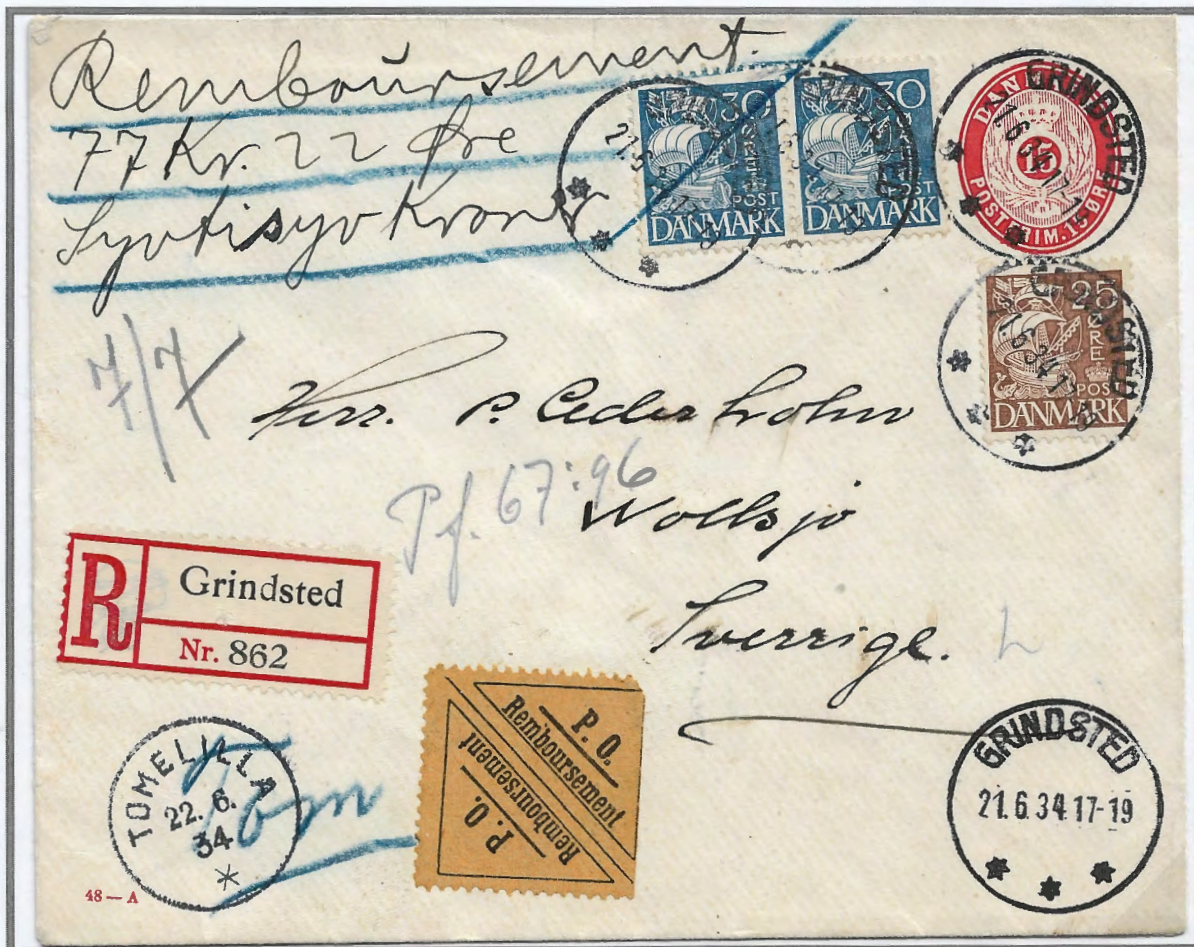 Remboursement.
77 Kr. 22 Øre
Syvtisyv Kroner
30 ØRE POST DANMARK
30 ØRE POST DANMARK
GRINDSTED
21.6.34.17-19
DANMARK
15
POSTFRIM. 15 ØRE
GRINDSTED
21.6.34 17-19
25 ØRE POST DANMARK
7/7
Herr. P. Cederholm
Pf. 67:96
Wollsjö
Sverrige.
R
Grindsted
Nr. 862
P. O.
Remboursement
P. O.
Remboursement
TOMELILLA
22. 6.
34
Tom
GRINDSTED
21.6.34.17-19
48 — A